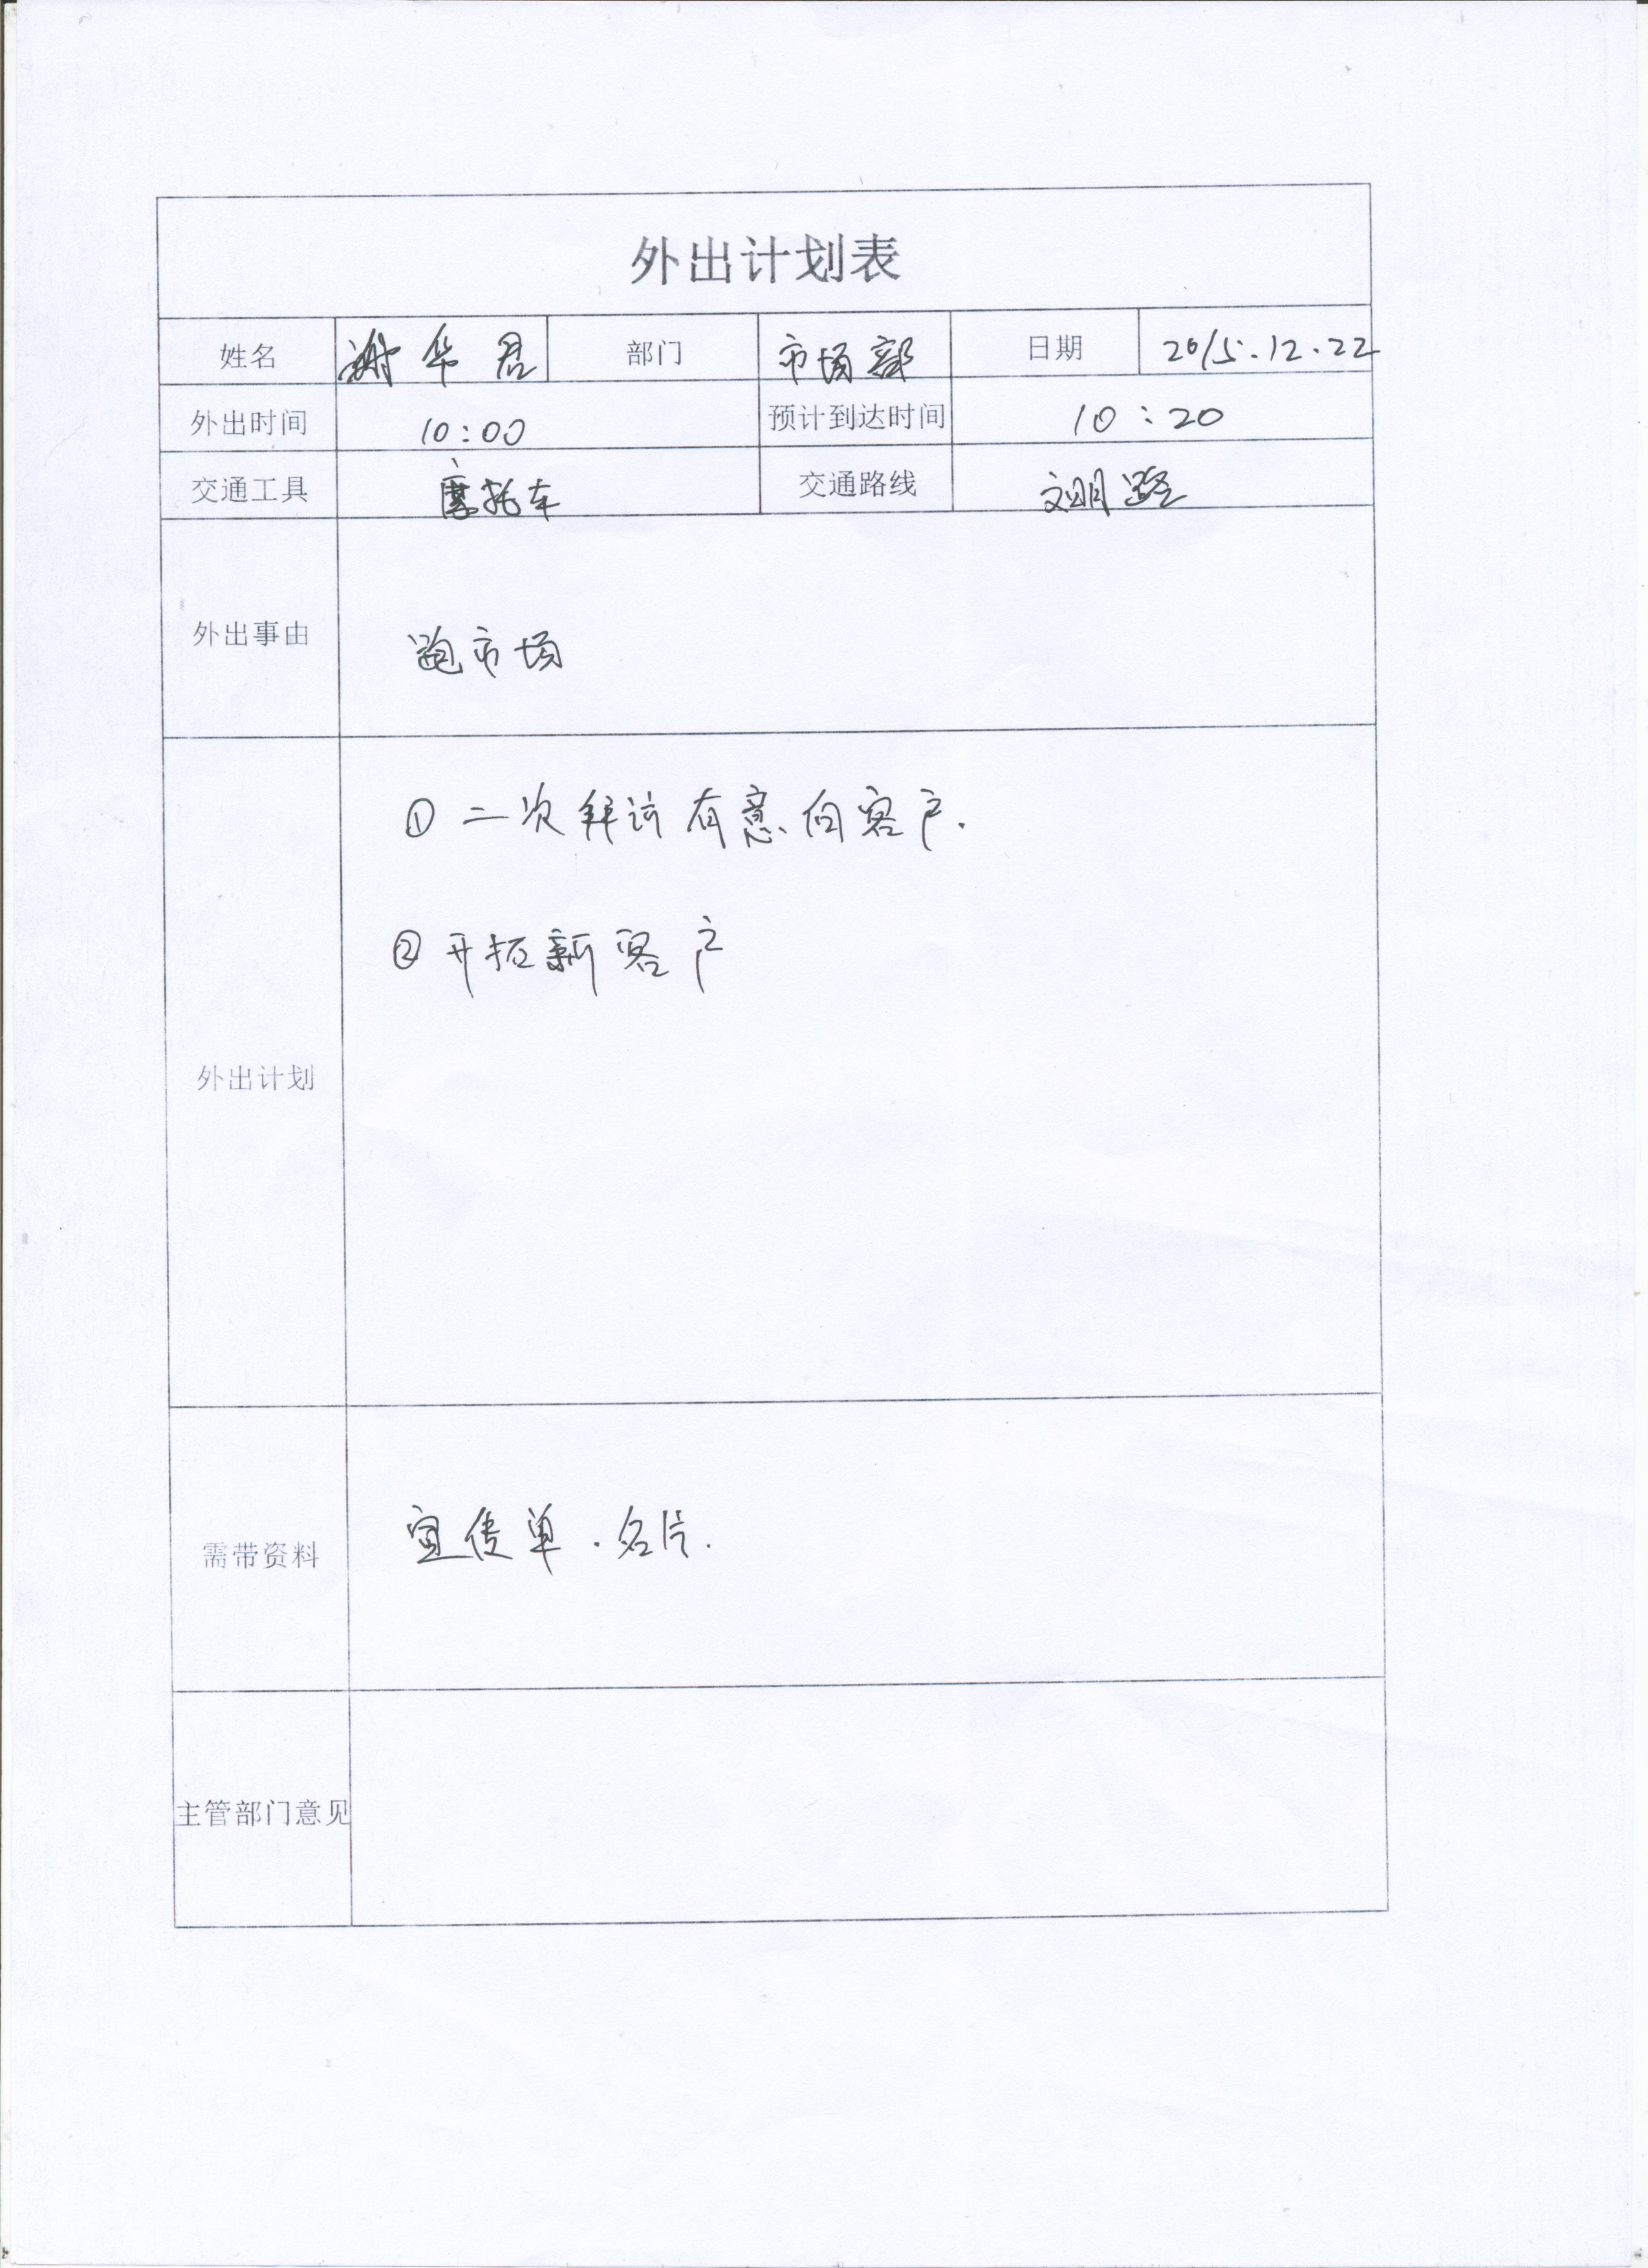 外出计划表
姓名 谢华君 部门 市场部 日期 2015.12.22
外出时间 10:00 预计到达时间 10:20
交通工具 摩托车 交通路线 文明路
外出事由 跑市场
①二次拜访有意向客户.
②开拓新客户
外出计划
需带资料 宣传单.名片.
主管部门意见